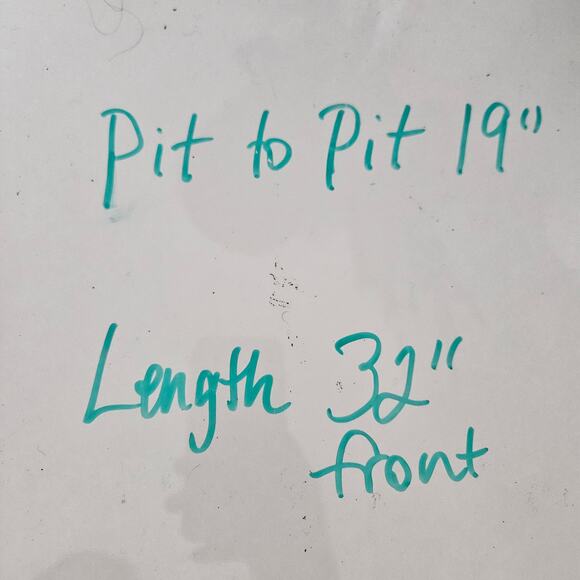 Pit to Pit 19"
Length 32"
front